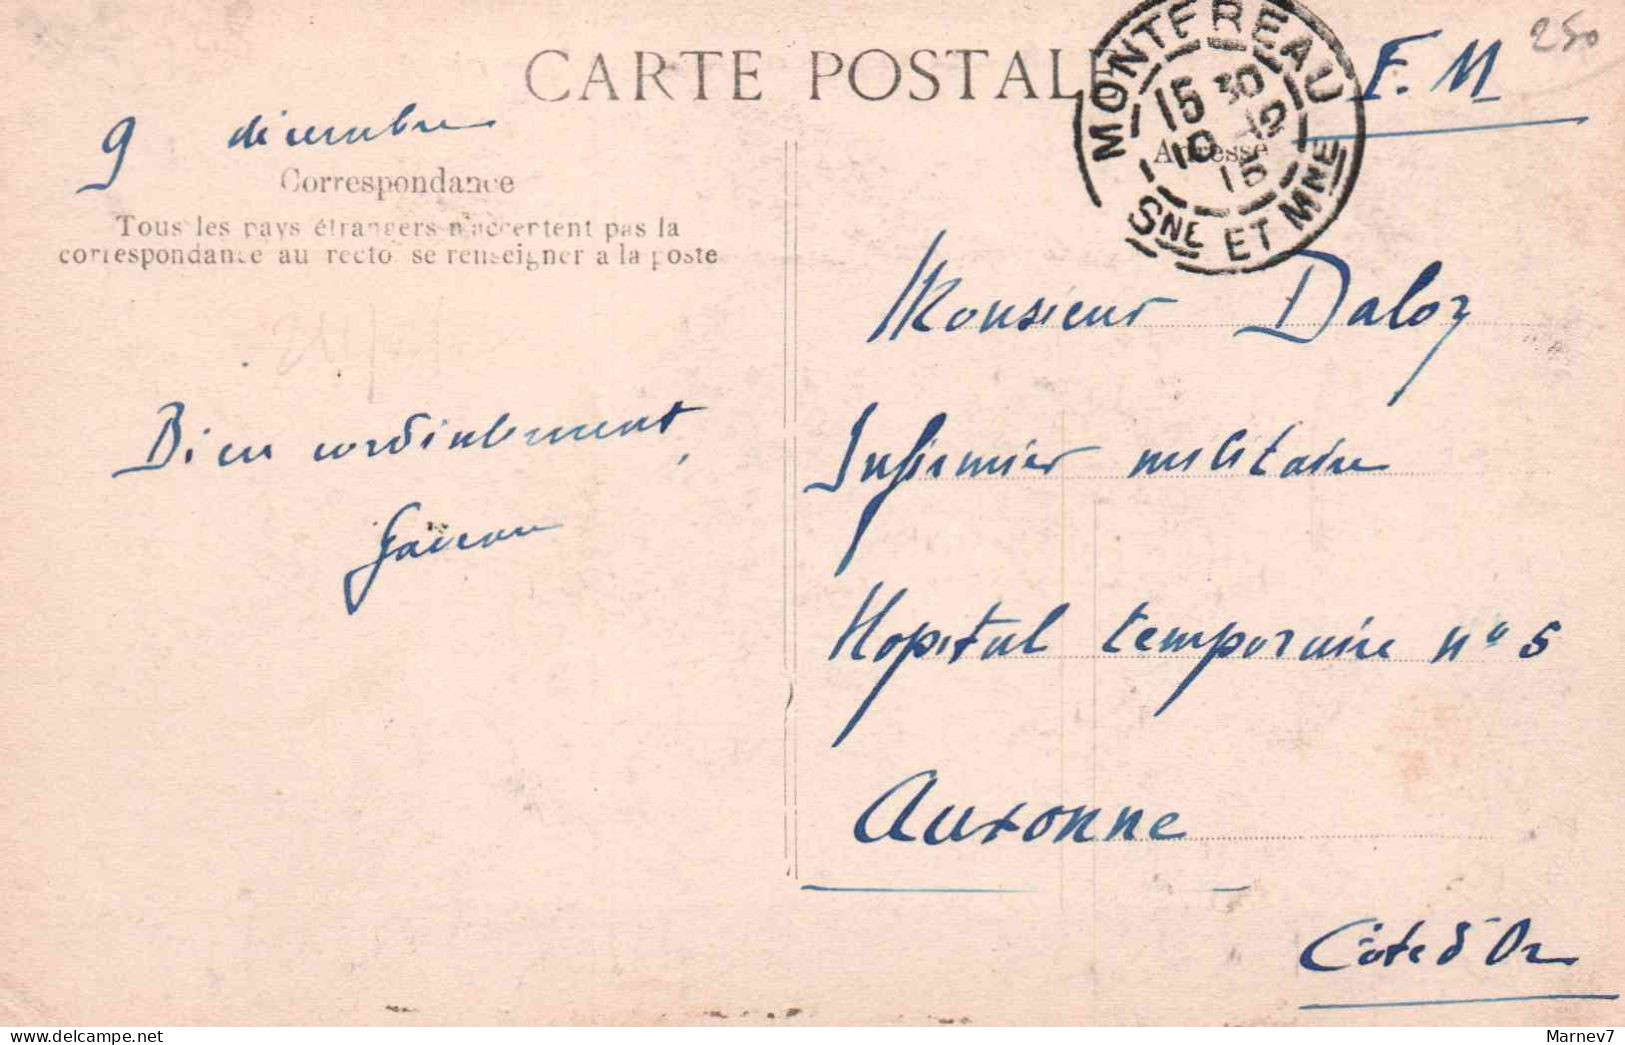 CARTE POSTALE
F. M
250
MONTEREAU
15 30
10 12
15
SNE ET MNE
9 décembre
Correspondance
Tous les pays étrangers n'acceptent pas la
correspondance au recto, se renseigner à la poste
Adresse
Bien cordialement,
Monsieur Daloz
Infirmier militaire
Hopital temporaire n° 5
Auxonne
Côte d'Or
delcampe.net
Marnev7